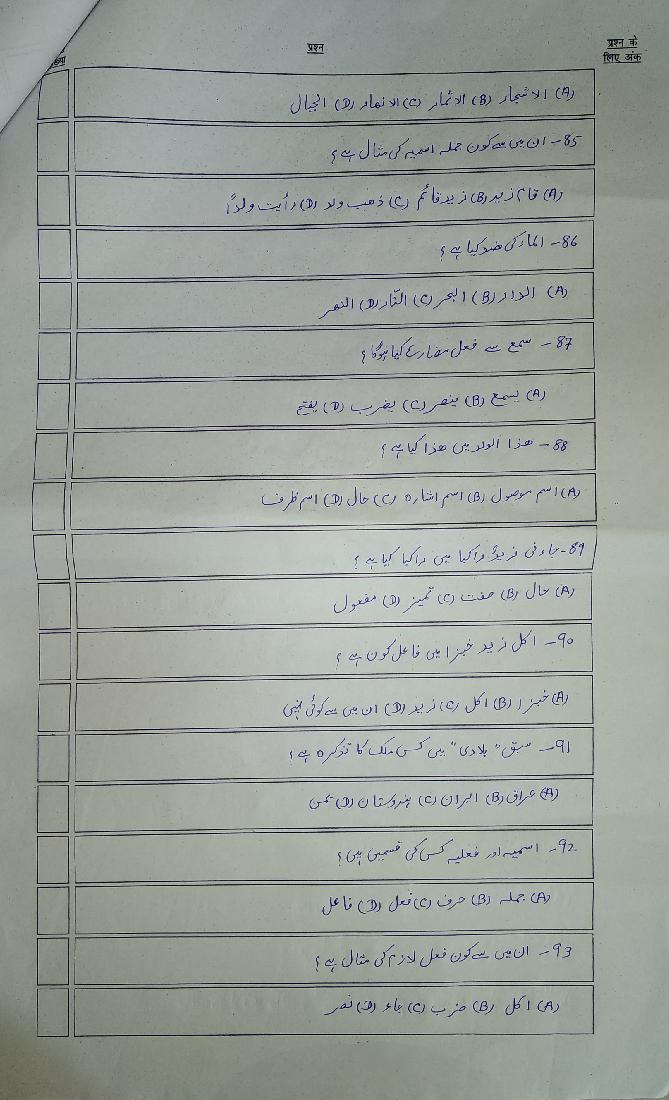 प्रश्न
प्रश्न के
लिए अंक
(A) الاشجار (B) الاثمار (C) الانهار (D) الجبال
85- ان میں سے کون جملہ اسمیہ کی مثال ہے؟
(A) قام زید (B) زید قائم (C) ذهب ولد (D) رأیت ولداً
86- الماء کی ضد کیا ہے؟
(A) الدار (B) البحر (C) النّار (D) النهر
87- سمع سے فعل مضارع کیا ہوگا؟
(A) یسمع (B) ینصر (C) یضرب (D) یفتح
88- هذا الولد میں هذا کیا ہے؟
(A) اسم موصول (B) اسم اشارہ (C) حال (D) اسم ظرف
89- جاءنی زیدٌ راکبا میں راکبا کیا ہے؟
(A) حال (B) صفت (C) تمیز (D) مفعول
90- اکل زید خبزا میں فاعل کون ہے؟
(A) خبزا (B) اکل (C) زید (D) ان میں سے کوئی نہیں
91- سبق "بلادی" میں کس ملک کا تذکرہ ہے؟
(A) عراق (B) ایران (C) ہندوستان (D) یمن
92- اسمیہ اور فعلیہ کس کی قسمیں ہیں؟
(A) جملہ (B) حرف (C) فعل (D) فاعل
93- ان میں سے کون فعل لازم کی مثال ہے؟
(A) اکل (B) ضرب (C) جاء (D) نصر